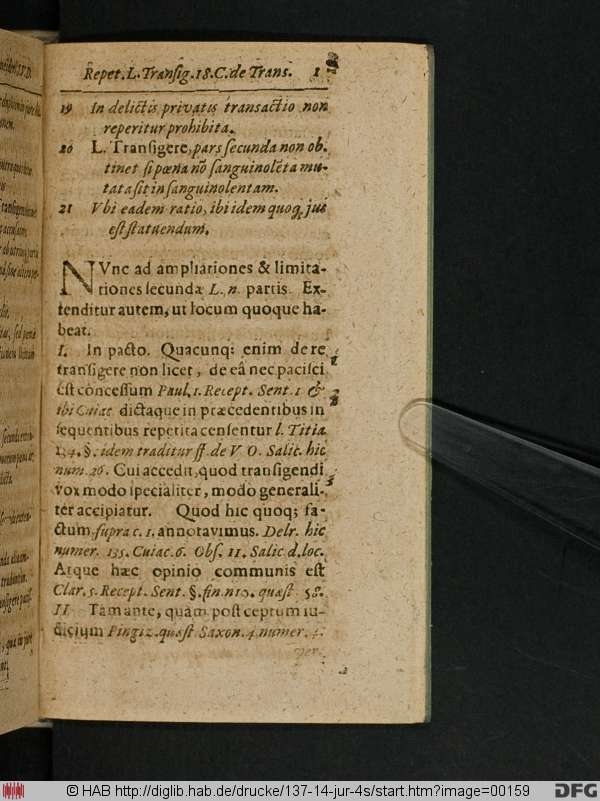 Repet. L. Transig. 18. C. de Trans. 1
19 In delictis privatis transactio non
reperitur prohibita.
20 L. Transigere, pars secunda non ob-
tinet si pœna nõ sanguinolẽta mu-
tata sit in sanguinolentam.
21 Vbi eadem ratio, ibi idem quoq; jus
est statuendum.
NVnc ad ampliationes & limita-
tiones secundæ L. n. partis. Ex-
tenditur autem, ut locum quoque ha-
beat.
I. In pacto. Quacunq; enim de re
transigere non licet, de eâ nec pacisci 1
est concessum Paul. 1. Recept. Sent. 1 &
ibi Cuiac dictaque in præcedentibus in 2
sequentibus repetita censentur l. Titia
§. idem traditur ff. de V O. Salic. hic
num. 26. Cui accedit, quod transigendi 3
vox modo specialiter, modo generali-
ter accipiatur. Quod hic quoq; fa-
ctum, supra c. 1. annotavimus. Delr. hic
numer. 135. Cuiac. 6. Obs. 11. Salic d. loc.
Atque hæc opinio communis est
Clar. 5. Recept. Sent. §. fin. quæst 58.
II Tam ante, quàm post ceptum iu-
dicium Pingiz. quæst Saxon. 4 numer. 4.
per.
© HAB http://diglib.hab.de/drucke/137-14-jur-4s/start.htm?image=00159
DFG